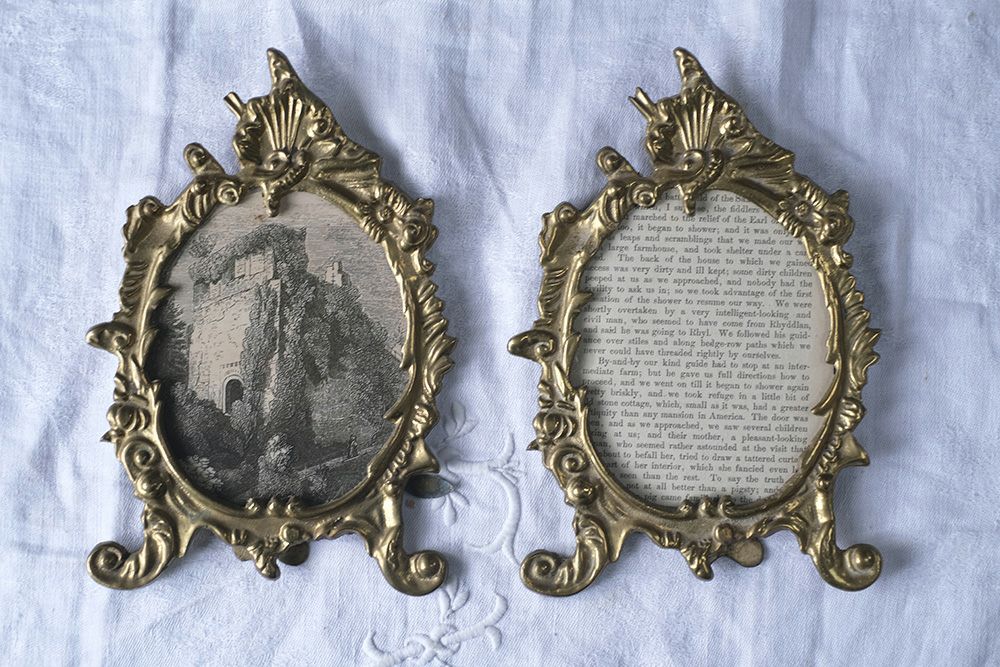 batt d of the Sa
which, I su se, the fiddlers
marched to the relief of the Earl
too, it began to shower; and it was on
leaps and scramblings that we made our w
large farmhouse, and took shelter under a ca
The back of the house to which we gained
ccess was very dirty and ill kept; some dirty children
peeped at us as we approached, and nobody had the
civility to ask us in; so we took advantage of the first
sation of the shower to resume our way. We were
shortly overtaken by a very intelligent-looking and
civil man, who seemed to have come from Rhyddlan,
and said he was going to Rhyl. We followed his guid-
ance over stiles and along hedge-row paths which we
never could have threaded rightly by ourselves.
By-and-by our kind guide had to stop at an inter-
mediate farm; but he gave us full directions how to
proceed, and we went on till it began to shower again
etty briskly, and we took refuge in a little bit of
stone cottage, which, small as it was, had a greater
tiquity than any mansion in America. The door was
en, and as we approached, we saw several children
ing at us; and their mother, a pleasant-looking
an, who seemed rather astounded at the visit that
bout to befall her, tried to draw a tattered curta
art of her interior, which she fancied even l
seen than the rest. To say the truth
not at all better than a pigsty; and
pig came